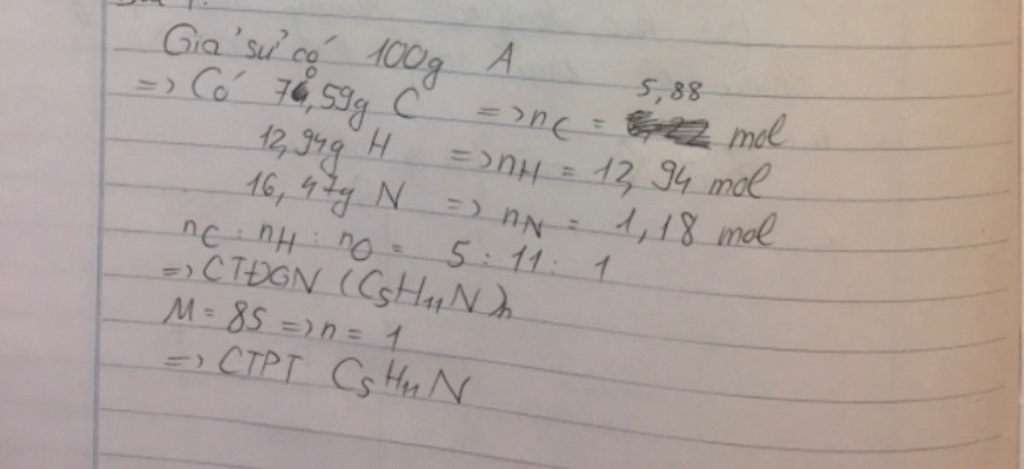 Giả sử có 100g A
=> Có 70,59g C => nC = 5,88 mol
12,94g H => nH = 12,94 mol
16,47g N => nN = 1,18 mol
nC : nH : nO = 5 : 11 : 1
=> CTĐGN (C5H11N)n
M = 85 => n = 1
=> CTPT C5H11N